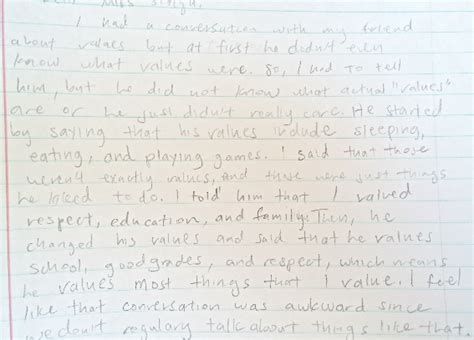 Miss
I had a conversation with my friend
about values but at first he didn't even
know what values were. So, I had to tell
him, but he did not know what actual "values"
are or he just didn't really care. He started
by saying that his values include sleeping,
eating, and playing games. I said that those
weren't exactly values, and those were just things
he liked to do. I told him that I valued
respect, education, and family. Then, he
changed his values and said that he values
school, good grades, and respect, which means
he values most things that I value. I feel
like that conversation was awkward since
we don't regulary talk about things like that.